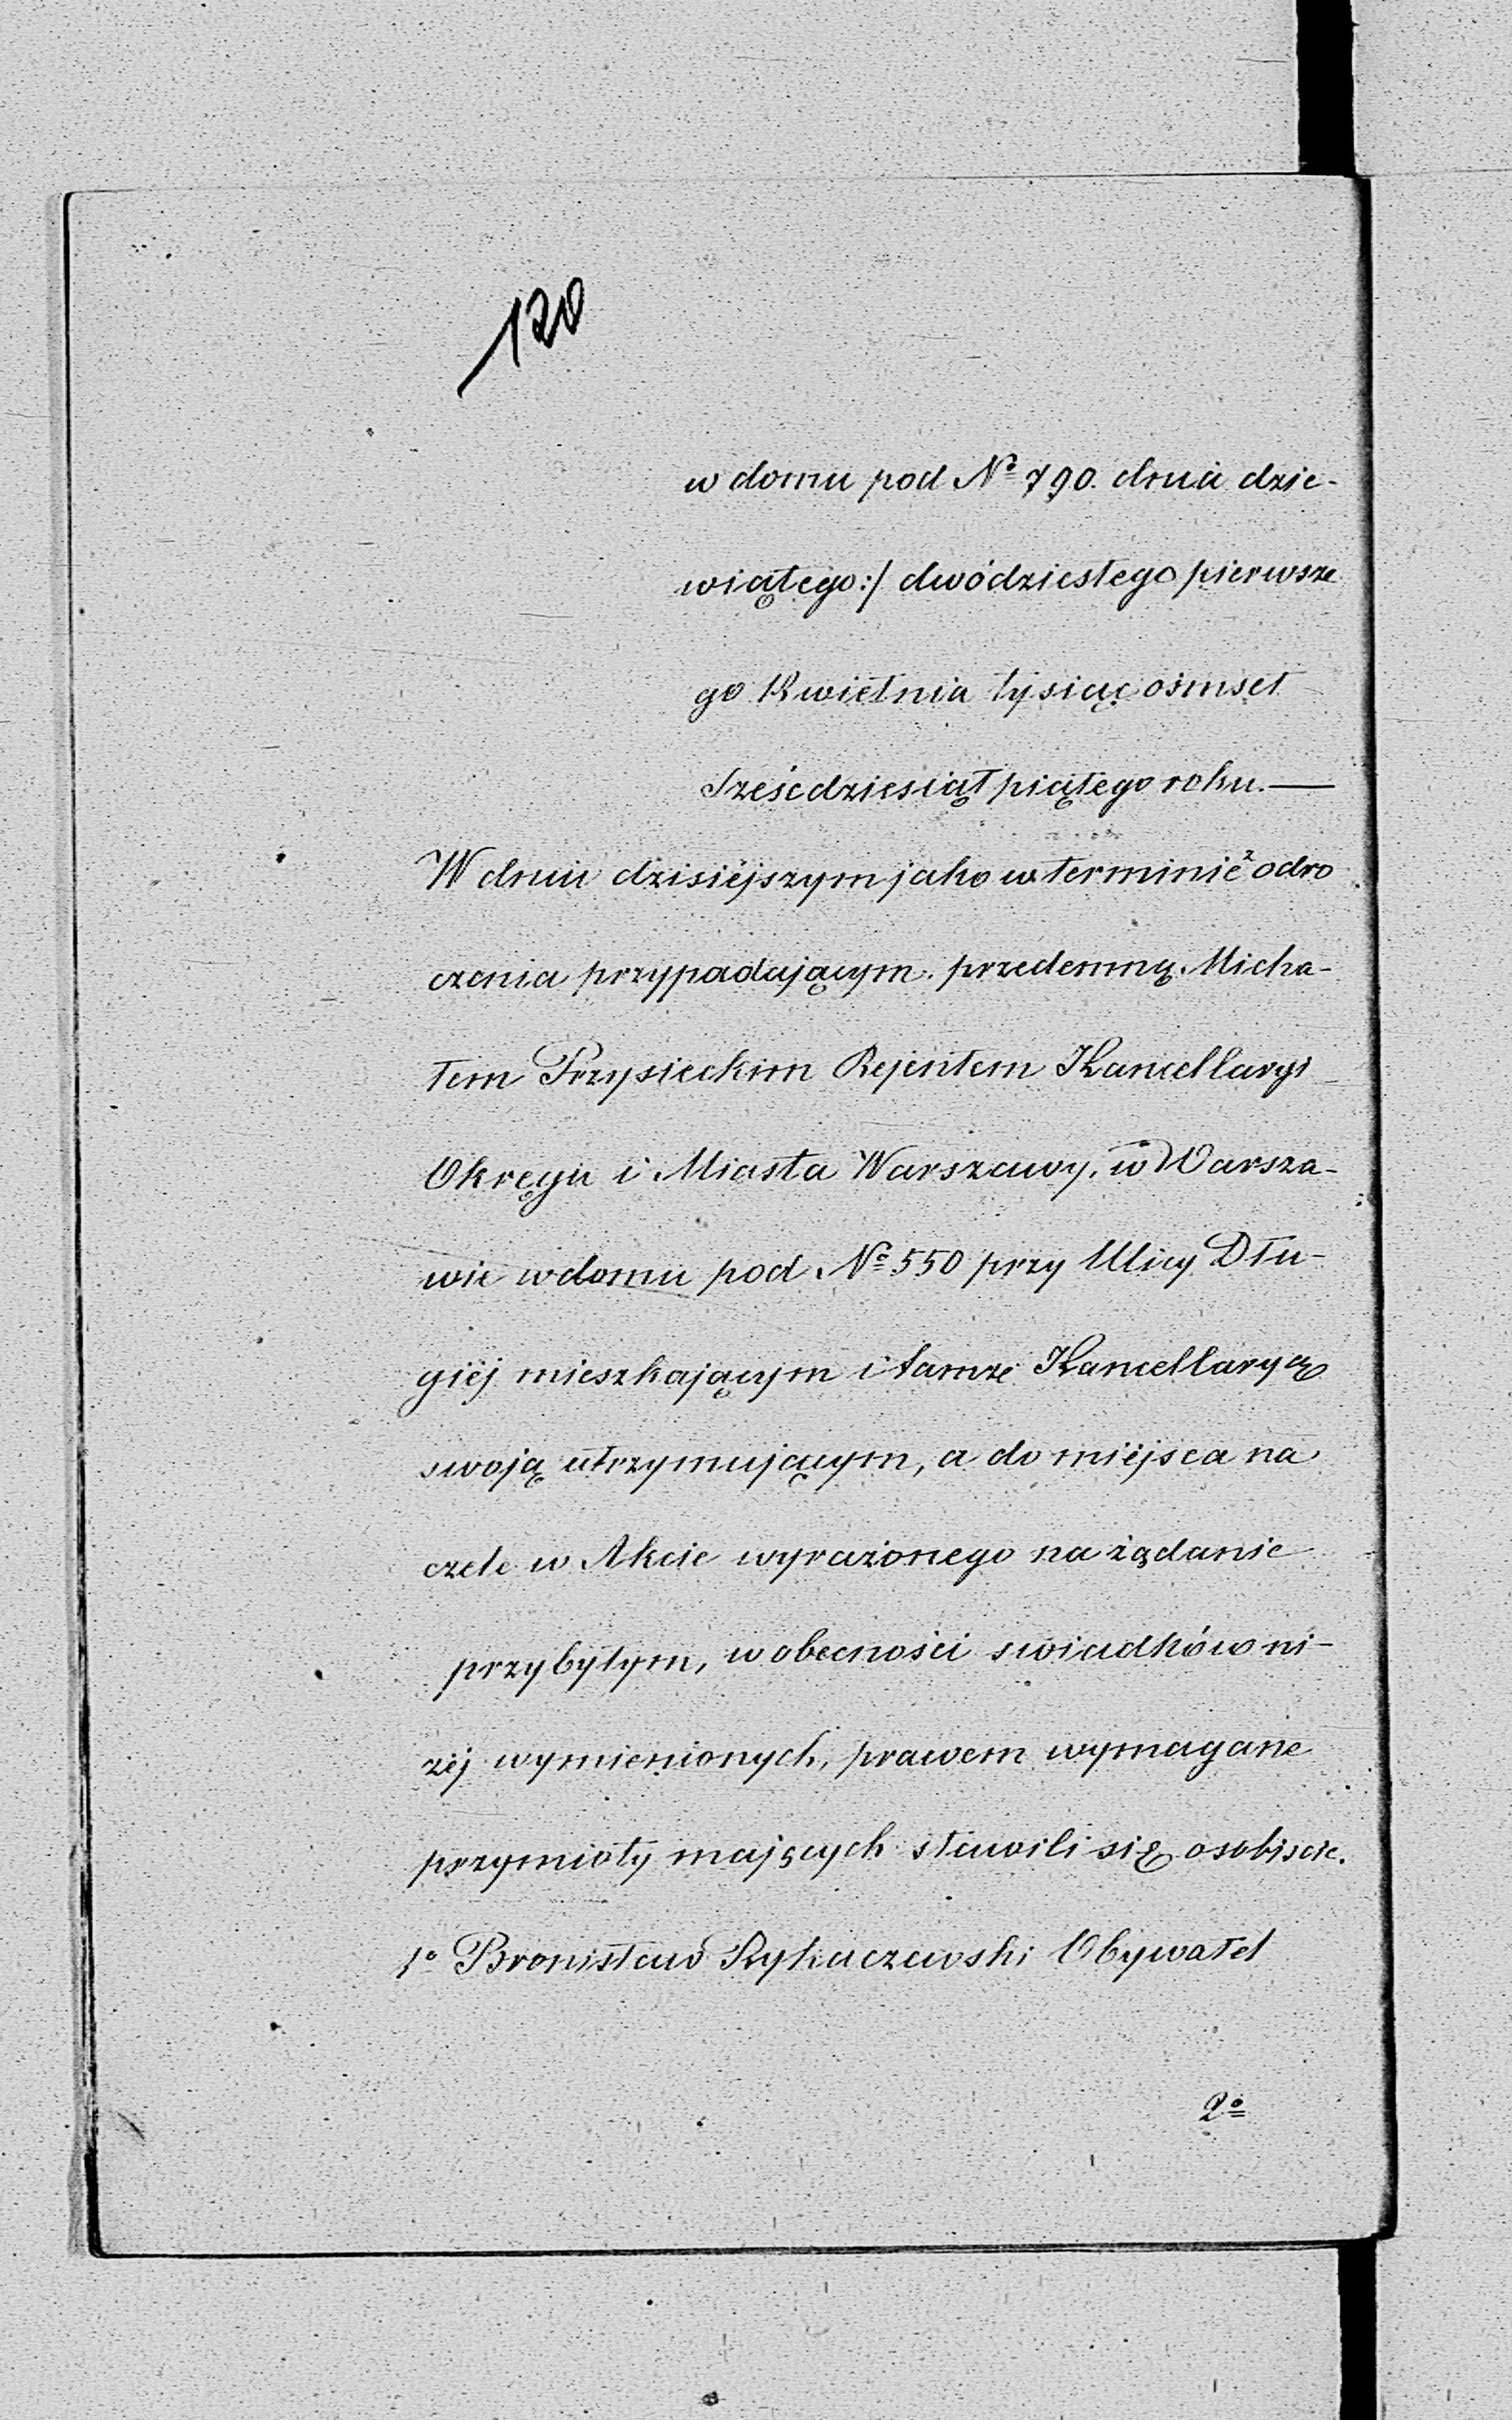 120
w domu pod № 790. dnia dzie-
wiątego :/ dwódziestego pierwsze
go Kwietnia tysiąc ośmset
sześćdziesiąt piątego roku. —
W dniu dzisiéjszym jako w terminie z odro
czenia przypadającym. przedemną Micha-
łem Przysieckim Rejentem Kancellaryi
Okręgu i Miasta Warszawy, w Warsza-
wie w domu pod № 550 przy Ulicy Dłu-
giéj mieszkającym i tamże Kancellaryą
swoją utrzymującym, a do miéjsca na
czele w Akcie wyrażonego na żądanie
przybyłym, w obecności swiadków ni-
żéj wymienionych, prawem wymagane
przymioty mających stawili się osobiscie.
1º Bronisław Rykaczewski Obywatel
2º